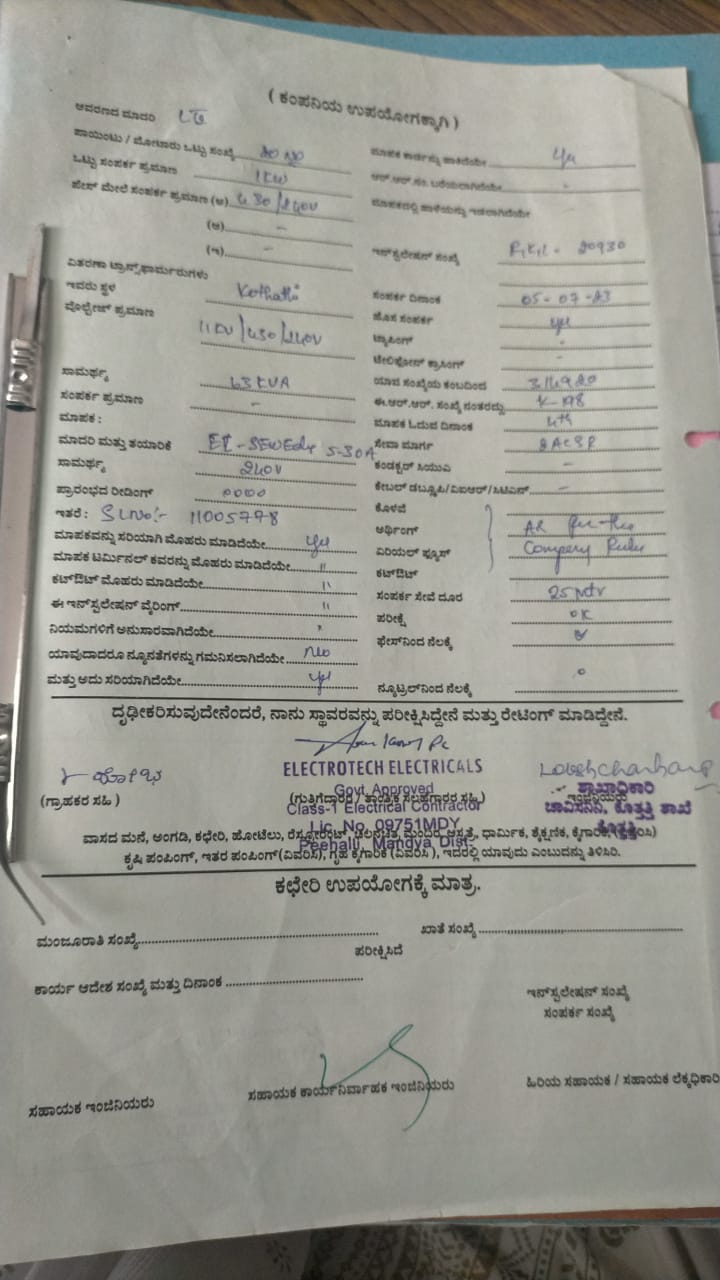 ( ಕಂಪನಿಯ ಉಪಯೋಗಕ್ಕಾಗಿ )
ಆವರಣದ ಮಾದರಿ LT
ಪಾಯಿಂಟು / ಮೋಟಾರು ಒಟ್ಟು ಸಂಖ್ಯೆ
ಒಟ್ಟು ಸಂಪರ್ಕ ಪ್ರಮಾಣ 1KW
ಫೇಸ್ ಮೇಲೆ ಸಂಪರ್ಕ ಪ್ರಮಾಣ (ಅ) 430/240V
(ಆ) -
(ಇ) -
ವಿತರಣಾ ಟ್ರಾನ್ಸ್‌ಫಾರ್ಮರುಗಳು
ಇವರು ಸ್ಥಳ Kothathi
ವೋಲ್ಟೇಜ್ ಪ್ರಮಾಣ 11KV/430/240V
ಸಾಮರ್ಥ್ಯ 63KVA
ಸಂಪರ್ಕ ಪ್ರಮಾಣ -
ಮಾಪಕ :
ಮಾದರಿ ಮತ್ತು ತಯಾರಿಕೆ 5-30A
ಸಾಮರ್ಥ್ಯ 240V
ಪ್ರಾರಂಭದ ರೀಡಿಂಗ್ 0000
ಇತರೆ : SLNo:- 11005778
ಮಾಪಕವನ್ನು ಸರಿಯಾಗಿ ಮೊಹರು ಮಾಡಿದೆಯೇ yes
ಮಾಪಕ ಟರ್ಮಿನಲ್ ಕವರನ್ನು ಮೊಹರು ಮಾಡಿದೆಯೇ "
ಕಟ್‌ಔಟ್ ಮೊಹರು ಮಾಡಿದೆಯೇ "
ಈ ಇನ್‌ಸ್ಟಲೇಷನ್ ವೈರಿಂಗ್ "
ನಿಯಮಗಳಿಗೆ ಅನುಸಾರವಾಗಿದೆಯೇ
ಯಾವುದಾದರೂ ನ್ಯೂನತೆಗಳನ್ನು ಗಮನಿಸಲಾಗಿದೆಯೇ No
ಮತ್ತು ಅದು ಸರಿಯಾಗಿದೆಯೇ yes
ಮಾಪಕ ಕಾರ್ಡನ್ನು ಹಾಕಿದೆಯೇ yes
ಆರ್.ಆರ್.ಸಂ. ಬರೆಯಲಾಗಿದೆಯೇ
ಮಾಪಕದಲ್ಲಿ ಹಾಳೆಯನ್ನು ಇಡಲಾಗಿದೆಯೇ
ಇನ್‌ಸ್ಟಲೇಷನ್ ಸಂಖ್ಯೆ 20930
ಸಂಪರ್ಕ ದಿನಾಂಕ 05-07-23
ಹೊಸ ಸಂಪರ್ಕ yes
ಟ್ಯಾಪಿಂಗ್
ಟೆಲಿಫೋನ್ ಕ್ರಾಸಿಂಗ್
ಯಾವ ಸಂಖ್ಯೆಯ ಕಂಬದಿಂದ
ಈ.ಆರ್.ಆರ್. ಸಂಖ್ಯೆ ನಂತರದ್ದು K-198
ಮಾಪಕ ಓದುವ ದಿನಾಂಕ 4th
ಸೇವಾ ಮಾರ್ಗ
ಕಂಡಕ್ಟರ್ ಸಿಯುಎ -
ಕೇಬಲ್ ಡಬ್ಲ್ಯೂಪಿ/ವಿಐಆರ್/ಸಿಟಿಎಸ್ -
ಕೊಳವೆ
ಅರ್ಥಿಂಗ್ As Per the
ಏರಿಯಲ್ ಫ್ಯೂಸ್ Company Rules
ಕಟ್‌ಔಟ್
ಸಂಪರ್ಕ ಸೇವೆ ದೂರ 25 Mtr
ಪರೀಕ್ಷೆ OK
ಫೇಸ್‌ನಿಂದ ನೆಲಕ್ಕೆ
ನ್ಯೂಟ್ರಲ್‌ನಿಂದ ನೆಲಕ್ಕೆ
ದೃಢೀಕರಿಸುವುದೇನೆಂದರೆ, ನಾನು ಸ್ಥಾವರವನ್ನು ಪರೀಕ್ಷಿಸಿದ್ದೇನೆ ಮತ್ತು ರೇಟಿಂಗ್ ಮಾಡಿದ್ದೇನೆ.
ELECTROTECH ELECTRICALS
Govt. Approved
Class-1 Electrical Contractor
Lic. No. 09751MDY
Peehalli, Mandya Dist-
(ಗ್ರಾಹಕರ ಸಹಿ )
(ಗುತ್ತಿಗೆದಾರರ / ತಾಂತ್ರಿಕ ಸಲಹೆಗಾರರ ಸಹಿ)
ಇಂಜಿನಿಯರು
ಶಾಖಾಧಿಕಾರಿ
ಚಾವಿಸನಿನಿ, ಕೊತ್ತತ್ತಿ ಶಾಖೆ
ಕೊತ್ತತ್ತಿ
ವಾಸದ ಮನೆ, ಅಂಗಡಿ, ಕಛೇರಿ, ಹೋಟೆಲು, ರೆಸ್ಟೋರೆಂಟ್, ಚಲನಚಿತ್ರ ಮಂದಿರ, ಆಸ್ಪತ್ರೆ, ಧಾರ್ಮಿಕ, ಶೈಕ್ಷಣಿಕ, ಕೈಗಾರಿಕೆ (ವಿವರಿಸಿ)
ಕೃಷಿ ಪಂಪಿಂಗ್, ಇತರ ಪಂಪಿಂಗ್(ವಿವರಿಸಿ), ಗೃಹ ಕೈಗಾರಿಕೆ (ವಿವರಿಸಿ ), ಇದರಲ್ಲಿ ಯಾವುದು ಎಂಬುದನ್ನು ತಿಳಿಸಿರಿ.
ಕಛೇರಿ ಉಪಯೋಗಕ್ಕೆ ಮಾತ್ರ.
ಮಂಜೂರಾತಿ ಸಂಖ್ಯೆ ಖಾತೆ ಸಂಖ್ಯೆ
ಪರೀಕ್ಷಿಸಿದೆ
ಕಾರ್ಯ ಆದೇಶ ಸಂಖ್ಯೆ ಮತ್ತು ದಿನಾಂಕ
ಇನ್‌ಸ್ಟಲೇಷನ್ ಸಂಖ್ಯೆ
ಸಂಪರ್ಕ ಸಂಖ್ಯೆ
ಸಹಾಯಕ ಇಂಜಿನಿಯರು ಸಹಾಯಕ ಕಾರ್ಯನಿರ್ವಾಹಕ ಇಂಜಿನಿಯರು ಹಿರಿಯ ಸಹಾಯಕ / ಸಹಾಯಕ ಲೆಕ್ಕಾಧಿಕಾರಿ